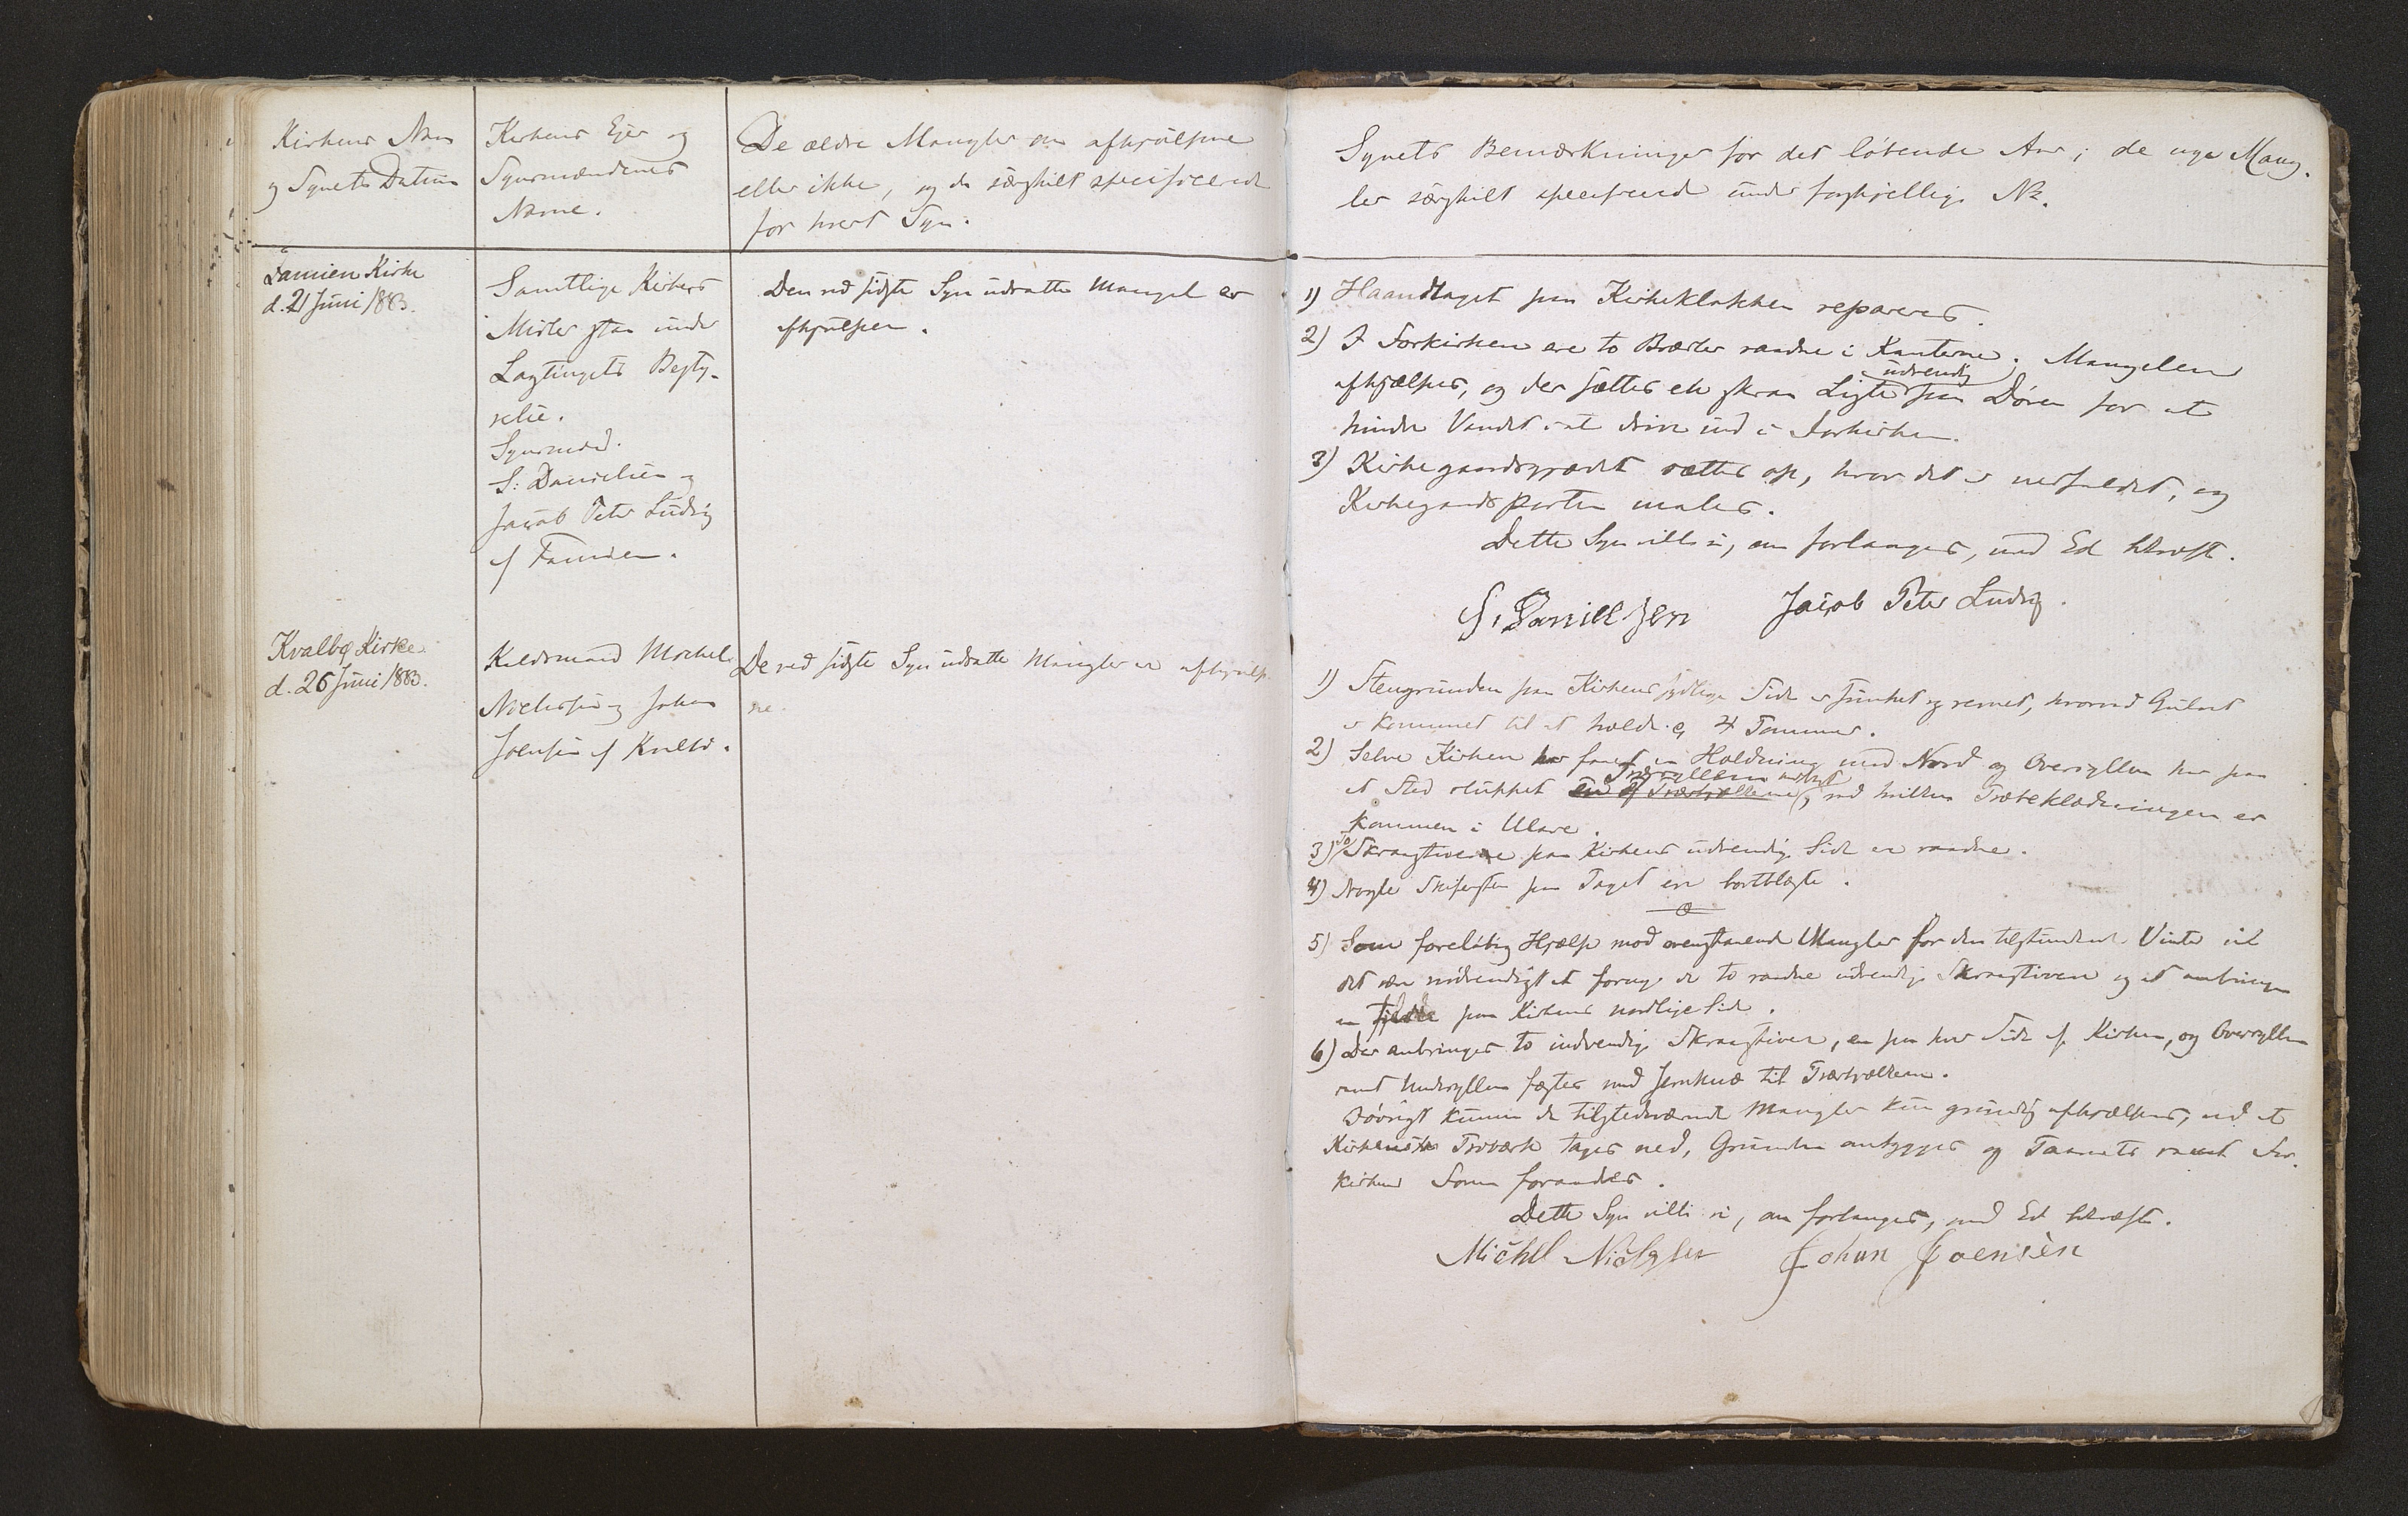 Kirkens Navn
og Synets Datum
Kirkens Ejer og
Synsmændenes
Navne.
De ældre Mangler om afhjulpne
eller ikke, og da særskilt specificerede
for hvert Syn.
Synets Bemærkninger for det løbende Aar; de nye Mang-
ler særskilt specificerede under forskjellige No.
Famien Kirke
d. 21 Juni 1883.
Samtlige Kirkers
Midler staa under
Lagtingets Besty-
relse.
Synsmænd.
S. Danielsen og
Jacob Peter Ludvig
af Famien.
Den ved sidste Syn udsatte Mangel er
afhjulpen.
1) Haandtaget paa Kirkeklokken repareres.
2) I Forkirken ere to Brædder raadne i Kanterne. Mangelen
afhjælpes, og der sættes en skraa Liste udvendig paa Døren for at
hindre Vandet i at drive ind i Forkirken.
3) Kirkegaardsgjærdet sættes op, hvor det er nedfaldet, og
Kirkegaardsporten males.
Dette Syn ville vi, om forlanges, med Ed bekræfte.
S. Danielsen Jacob Peter Ludvig.
Kvalbø Kirke
d. 26 Juni 1883.
Michel
Nielsen og Johan
Joensen af Kvalbø.
De ved sidste Syn udsatte Mangler ere afhjulp-
ne.
1) Stengrunden paa Kirkens sydlige Side er sunket og revnet, hvorved Gulvet
er kommet til at helde c. 4 Tommer.
2) Selve Kirken har faaet en Heldning mod Nord og Oversyllen har paa
et Sted sluppet, ved hvilken Træbeklædningen er
kommen i Ulave.
3) To Skraastivere paa Kirkens udvendige Side ere raadne.
4) Nogle Skifersten paa Taget ere bortblæste.
5) Som foreløbig Hjælp mod ovenstaaende Mangler for den tilstundende Vinter vil
det være nødvendigt at forny de to raadne udvendige Skraastivere og at anbringe
en paa Kirkens nordlige Side.
6) Der anbringes to indvendige Skraastivere, en paa hver Side af Kirken, og Oversyllen
samt Undersyllen fæstes med Jernknæ til Tværbjælkerne.
Iøvrigt kunne de tilstedeværende Mangler kun grundig afhjælpes, ved at
Kirkens Træværk tages ned, Grunden ombygges og Taarnets samt For-
kirkens Form forandres.
Dette Syn ville vi, om forlanges, med Ed bekræfte.
Michel Nielsen Johan Joensen